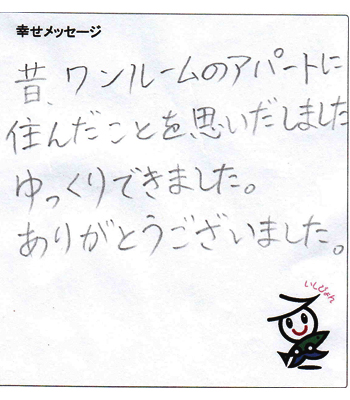 幸せメッセージ
昔、ワンルームのアパートに
住んだことを、思いだしました
ゆっくりできました。
ありがとうございました。